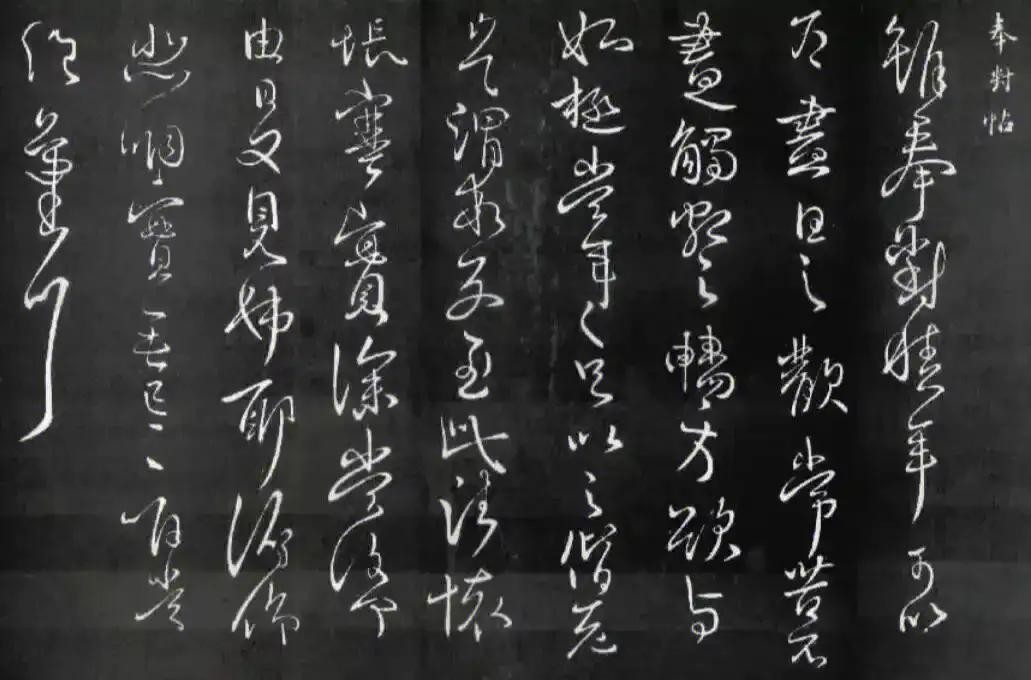 奉對帖
雖奉對積年可以
為盡日之歡常苦不
盡觸額之暢方欲與
姊極當年之疋以之偕老
豈謂乖別至此諸懷
悵塞實深當復何
由日夕見姊耶俯仰
悲咽實無已已惟當
絕氣耳